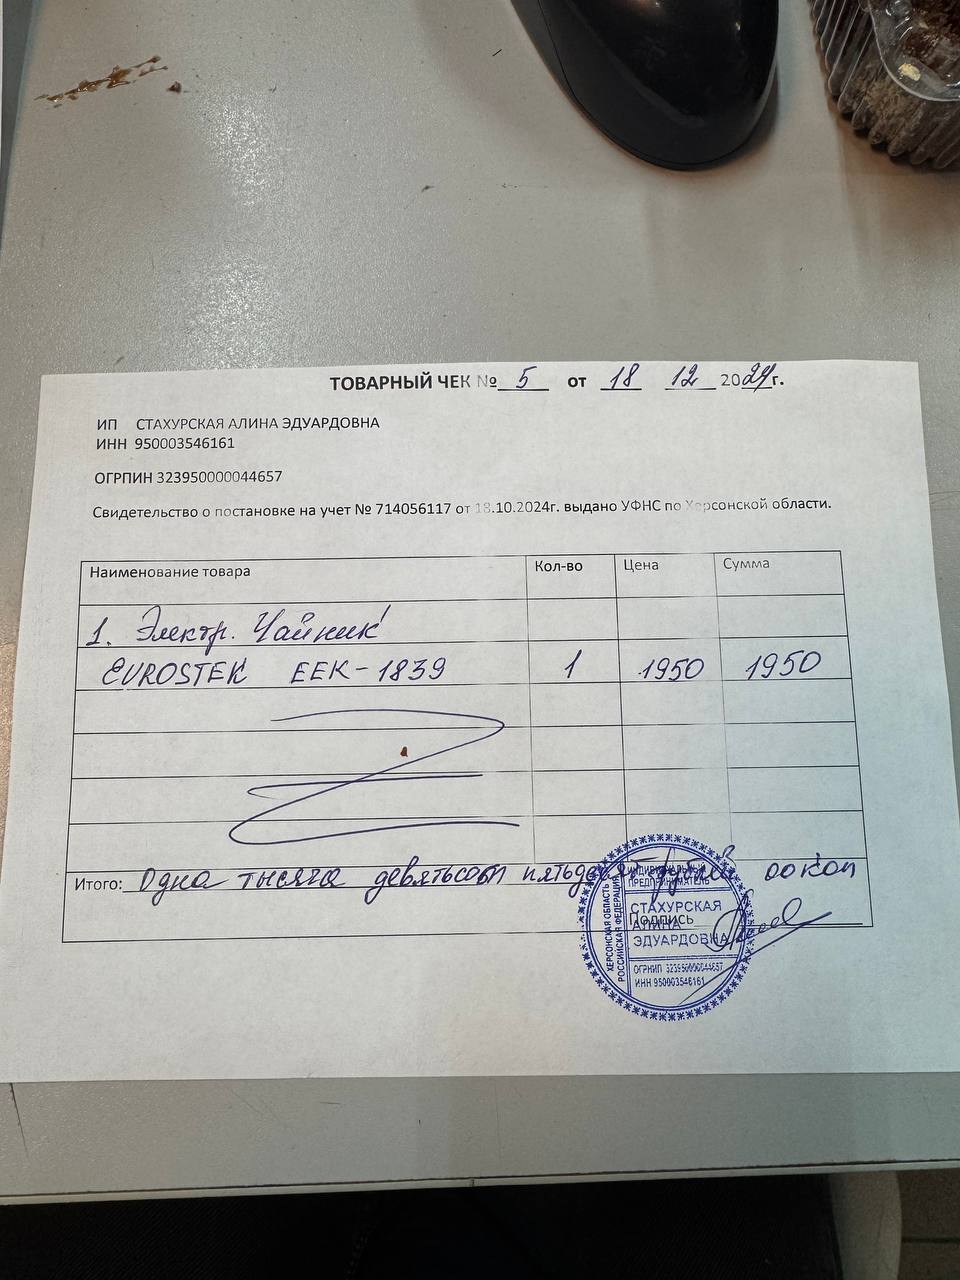 ТОВАРНЫЙ ЧЕК № 5 от 18 12 2024г.
ИП СТАХУРСКАЯ АЛИНА ЭДУАРДОВНА
ИНН 950003546161
ОГРПИН 323950000044657
Свидетельство о постановке на учет № 714056117 от 18.10.2024г. выдано УФНС по Херсонской области.
Наименование товара Кол-во Цена Сумма
1. Электр. Чайник
EVROSTEK EEK-1839 1 1950 1950
Итого: Одна тысяча девятьсот пятьдесят рублей 00 коп
Подпись
ХЕРСОНСКАЯ ОБЛАСТЬ
РОССИЙСКАЯ ФЕДЕРАЦИЯ
ИНДИВИДУАЛЬНЫЙ
ПРЕДПРИНИМАТЕЛЬ
СТАХУРСКАЯ
АЛИНА
ЭДУАРДОВНА
ОГРНИП 323950000044657
ИНН 950003546161